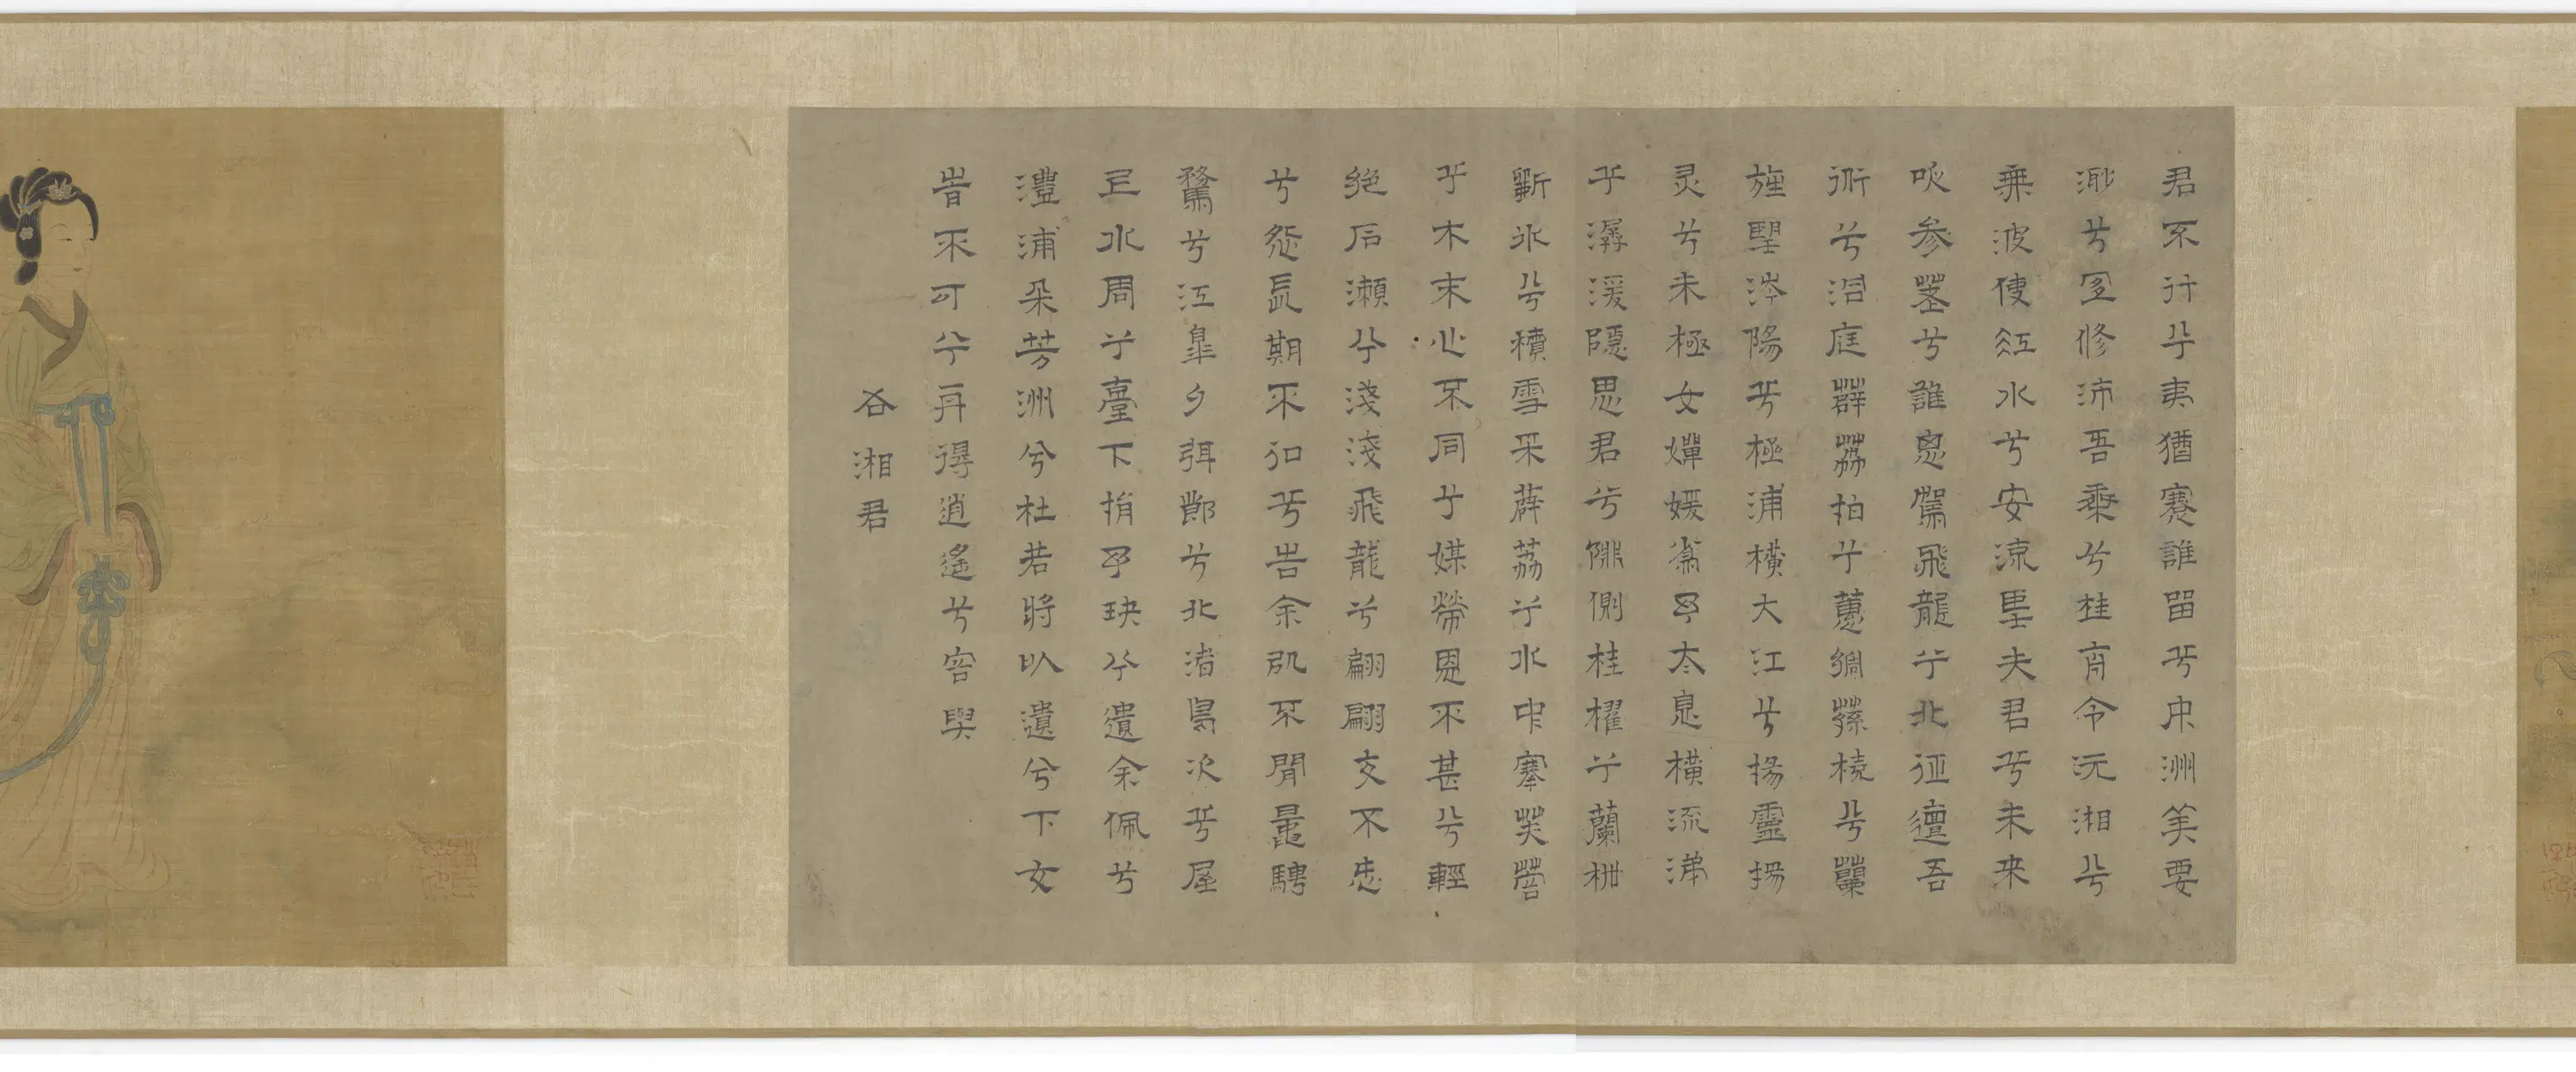 君不行兮夷猶蹇誰留兮中洲美要
渺兮宜修沛吾乘兮桂舟令沅湘兮
無波使江水兮安流望夫君兮未来
吹参差兮誰思駕飛龍兮北征邅吾
道兮洞庭薜荔拍兮蕙綢蓀橈兮蘭
旌望涔陽兮極浦橫大江兮揚靈揚
灵兮未極女嬋媛為予太息橫流涕
兮潺湲隱思君兮陫側桂櫂兮蘭枻
斲冰兮積雪采薜荔兮水中搴芙蓉
兮木末心不同兮媒勞恩不甚兮輕
絕石瀨兮淺淺飛龍兮翩翩交不忠
兮怨長期不信兮告余以不閒鼂騁
騖兮江皋夕弭節兮北渚鳥次兮屋
上水周兮堂下捐予玦兮遺余佩兮
澧浦采芳洲兮杜若將以遺兮下女
旹不可兮再得逍遙兮容與
右湘君